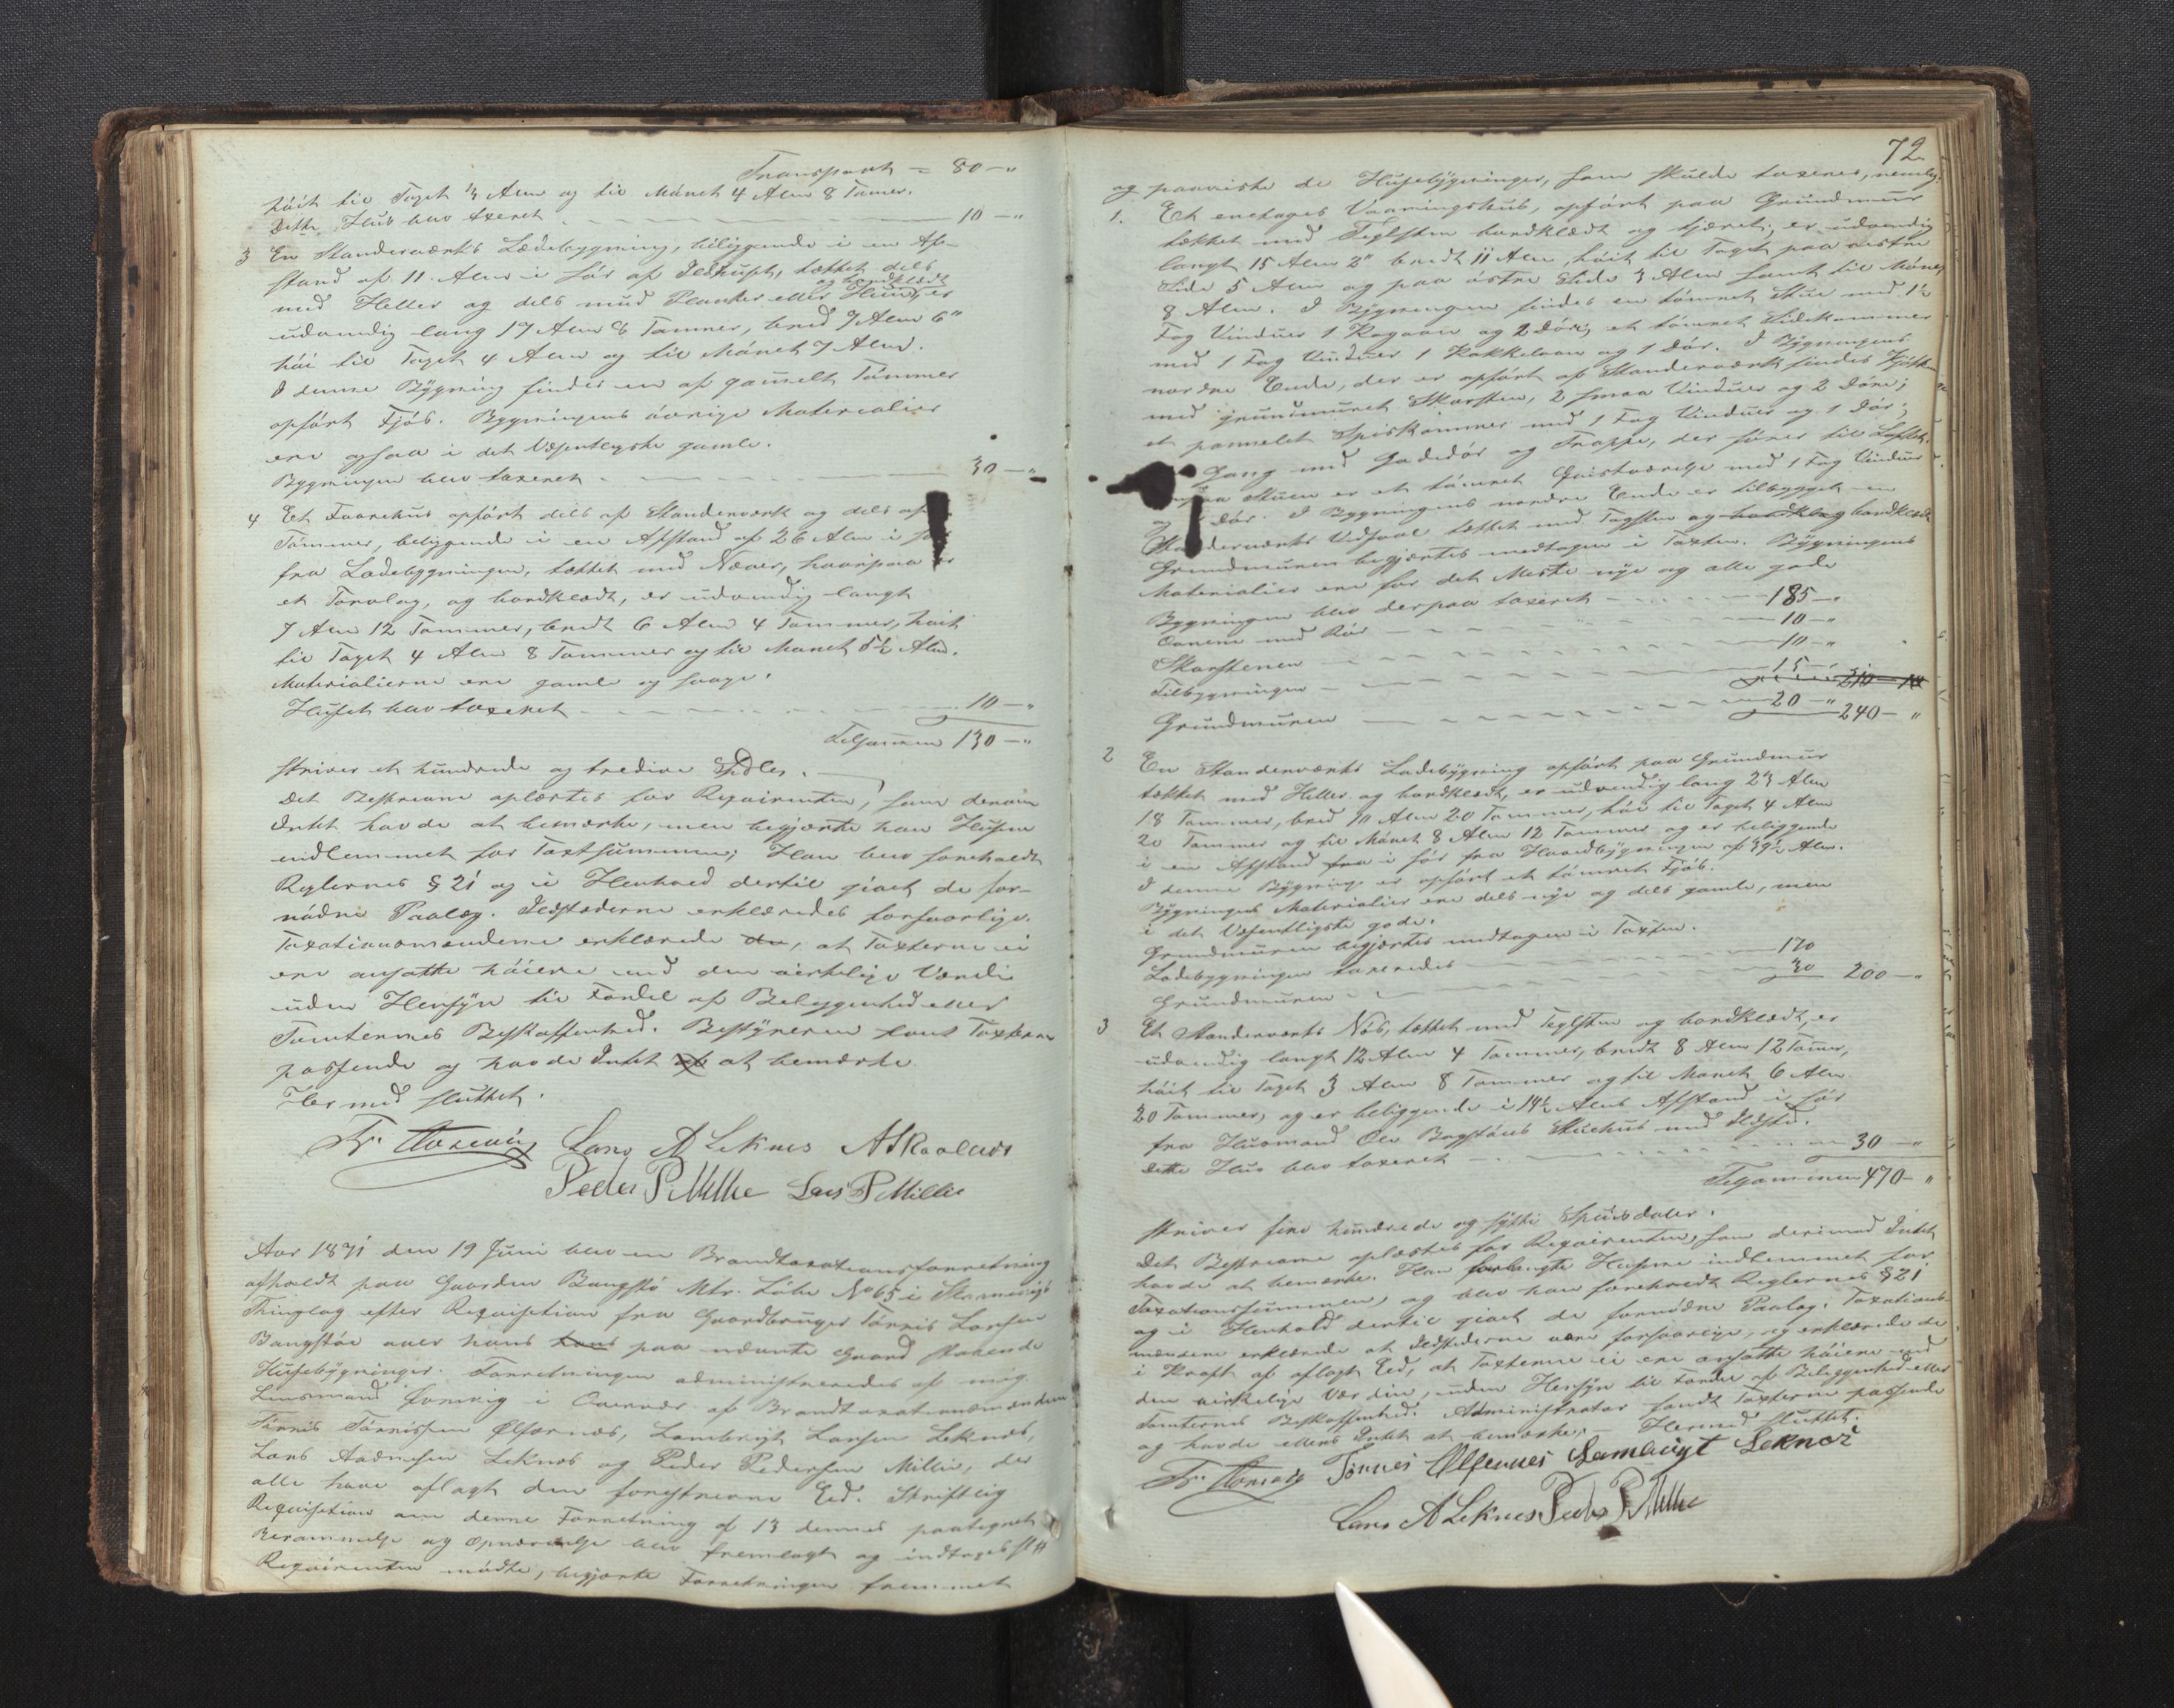 Transport = 80 – "
höit til Taget 3 Alen og til Mönet 4 Alen 8 Tomer.
Dette Huus blev taxeret 10 – "
3 En Standerværks Ladebygning, beliggende i en Af-
stand af 11 Alen i Sör af Ildhuset, tækket dels
med Heller og dels med Planker eller Huun, og bordklædt er
udvendig lang 17 Alen 6 Tommer, bred 7 Alen 6"
höi til Taget 4 Alen og til Mönet 7 Alen.
I denne Bygning findes en af gammelt Tömmer
opfört Fjös. Bygningens övrige Materialier
ere ogsaa i det Væsentligste gamle.
Bygningen blev taxeret 30 – "
4 Et Faarehus opfört dels af Standerværk og dels af
Tömmer, beliggende i en Afstand af 26 Alen i
fra Ladebygningen, tækket med Næver, hvorpaa er
et Torvlag, og bordklædt, er udvendig langt
7 Alen 12 Tommer, bredt 6 Alen 4 Tommer, höit
til Taget 4 Alen 8 Tommer og til Mönet 5½ Alen.
Materialierne ere gamle og svage.
Huset blev taxeret 10 – "
Tilsammen 130 – "
skriver et hundrede og tredive Spdlr.
Det Beskrevne oplæstes for Reqvirenten, som derom
Intet havde at bemærke, men begjærte han Husene
indlemmet for Taxtsummen; Han blev foreholdt
Reglernes § 21 og i Henhold dertil givet de for-
nödne Paalæg. Ildstæderne erklæredes forsvarlige.
Taxationsmændene erklærede de, at Taxterne ei
ere ansatte höiere end den virkelige Værdie
uden Hensyn til Fordel af Beliggenhed eller
Tomternes Beskaffenhed. Bestyreren fandt Taxterne
passende og havde Intet at bemærke
Hermed sluttet.
Lars A Leknes A Skaalevi
Peder P Millie Lars P Millie
Aar 1871 den 19 Juni blev en Brandtaxationsforretning
afholdt paa Gaarden Bangstö Mtr. Löbe No 65 i
Thinglag efter Reqvisition fra Gaardbruger Tönnis Larsen
Bangstöe over hans hans paa nævnte Gaard staaende
Husebygninger. Forretningen administreredes af mig
Lensmand i Overvær af Brandtaxationsmændene
Tönnis Tönnissen Ølfernæs, Lambrigt Larsen Leknæs,
Lars Andersen Leknæs og Peder Pedersen Millie, der
alle have aflagt den foreskrevne Eed. Skriftlig
Reqvisition om denne Forretning af 13 dennes paategnet
Berammelse og Opnævnelse blev fremlagt og indtages
Reqvirenten mödte, begjærte Forretningen fremmet
72
og paaviste de Husebygninger, som skulde taxeres, nemlig:
1. Et enetages Vaaningshus, opfört paa Grundmuur
tækket med Teglsten bordklædt og tjæret, er udvendig
langt 15 Alen 2" bredt 11 Alen, höit til Taget paa vestre
Side 5 Alen og paa östre Side 3 Alen samt til Mönet
8 Alen. I Bygningen findes en tömret Stue med 1½
Fag Vinduer 1 Kogovn og 2 Döre; et tömret Sidekammer
med 1 Fag Vinduer 1 Kakkelovn og 1 Dör. I Bygningens
nordre Ende, der er opfört af Standerværk findes Kjökken
med grundmuret Skorsten, 2 smaa Vinduer og 2 Döre;
et pannelet Spiskammer med 1 Fag Vinduer og 1 Dör;
Gang med Gadedör og Trappe, der förer til Loftet.
Stuen er et tömret Qvistværelse med 1 Fag Vinduer
og 1 Dör. I Bygningens nordre Ende er tilbygget en
Standerværks Vedsval tækket med Tagsten og bordklæg bordklædt
Grundmuren begjærtes medtagen i Taxten. Bygningens
Materialier ere for det Meste nye og alle gode
Bygningen blev derpaa taxeret 185 – "
Ovnene med Rör 10 – "
Skorstenen 10 – "
Tilbygningen 15 – "
Grundmuren 20 – " 240 – "
2 En Standerværks Ladebygning opfört paa Grundmuur
tækket med Heller og bordklædt, er udvendig lang 23 Alen
18 Tommer, bred 10 Alen 20 Tommer, höi til Taget 4 Alen
20 Tommer og til Mönet 8 Alen 12 Tommer og er beliggende
i en Afstand fra i Sör fra Hovedbygningen af 39½ Alen.
I denne Bygning er opfört et tömret Fjös.
Bygningens Materialier ere dels nye og dels gamle, men
i det Væsentligste gode.
Grundmuren begjærtes medtagen i Taxten.
Ladebygningen taxeredes 170
Grundmuren 30 200 – "
3 Et Standerværks Nöst, tækket med Teglsten og bordklædt, er
udvendig langt 12 Alen 4 Tommer, bredt 8 Alen 12 Tomer,
höit til Taget 3 Alen 8 Tommer og til Mönet 6 Alen
20 Tommer, og er beliggende i 14½ Alens Afstand i Sör
fra Husmand Ole Bogstöens Stuehus med Ildsted.
Dette Hus blev taxeret 30 – "
Tilsammen 470 – "
skriver fire hundrede og sytti Speciesdaler.
Det Beskrevne oplæstes for Reqvirenten, som derimod Intet
havde at bemærke. Han forlangte Husene indlemmet for
Taxationssummen, og blev han foreholdt Reglernes § 21
og i Henhold dertil givet de fornödne Paalæg. Taxations-
mændene erklærede at Ildstederne vare forsvarlige, og erklærede de
i Kraft af aflagt Eed, at Taxterne ei ere ansatte höiere end
den virkelige Værdie, uden Hensyn til Fordel af Beliggenhed eller
Tomternes Beskaffenhed. Administrator fandt Taxterne passende
og havde ellers Intet at bemærke. – Hermed sluttet.
Tönnes Ølfernes Lambrigt Leknes
Lars A Leknes Peder P Millie